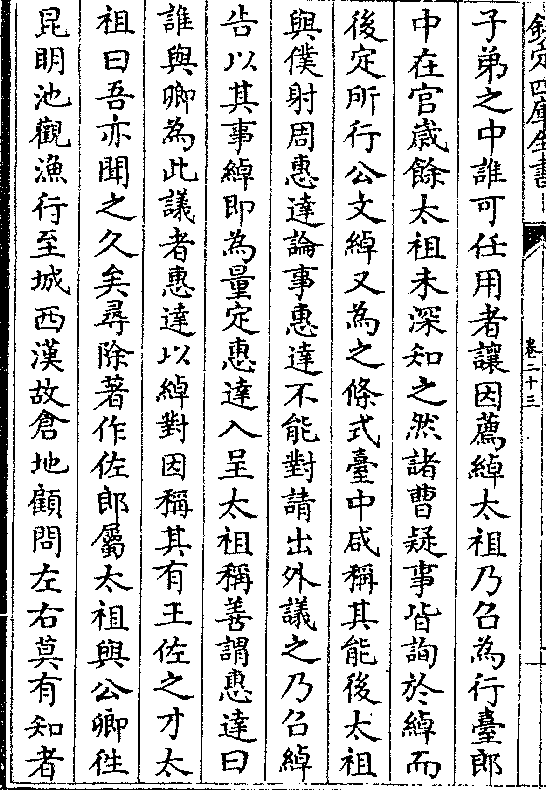 欽定四庫全書
卷二十三
子弟之中誰可任用者讓因薦綽太祖乃召為行臺郎
中在官歲餘太祖未深知之然諸曹疑事皆詢於綽而
後定所行公文綽又為之條式臺中咸稱其能後太祖
與僕射周惠達論事惠達不能對請出外議之乃召綽
告以其事綽即為量定惠達入呈太祖稱善謂惠達曰
誰與卿為此議者惠達以綽對因稱其有王佐之才太
祖曰吾亦聞之久矣尋除著作佐郎屬太祖與公卿徃
昆明池觀漁行至城西漢故倉地顧問左右莫有知者